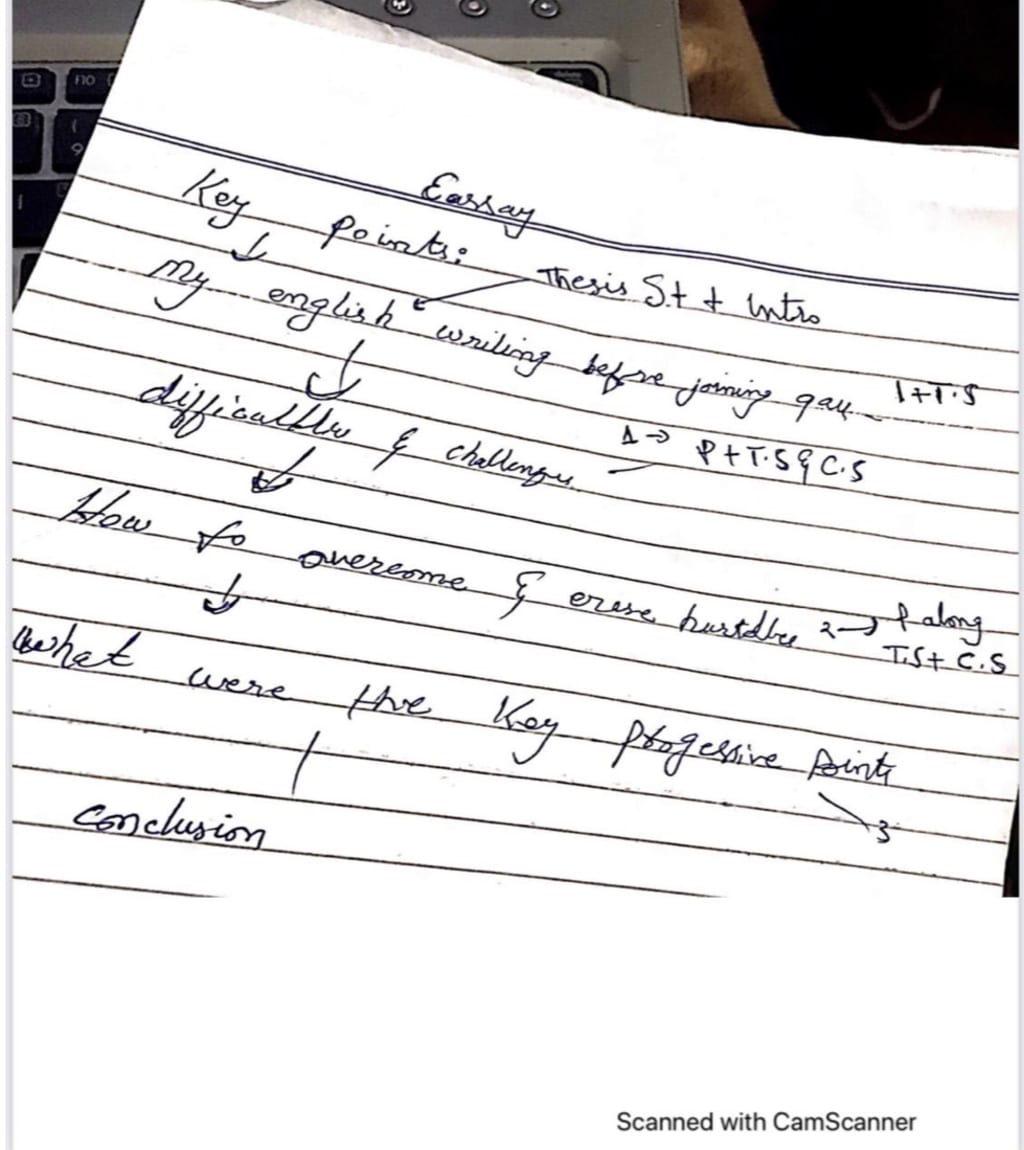 Eassay
Key Points:
Thesis S.t + Intro
My english writing before joining qau
1+T.S
difficultlies & challenges
1 → P+T.S & C.S
How to overcome & erese hurtdles
2 → P along
T.S + C.S
What were the Key Progessive Points
3
Conclusion
Scanned with CamScanner